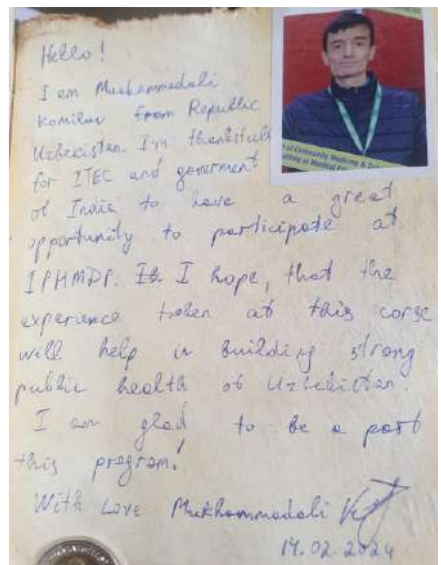 Hello!
I am Mukhammadali
Komilov from Republic
Uzbekistan. I'm thankfull
for ITEC and goverment
of India to have a great
opportunity to participate at
IPHMDP. I hope, that the
experience taken at this corse
will help in building strong
public health of Uzbekistan.
I am glad to be a part
this program!
With Love Mukhammadali
14.02.2024
of Community Medicine &
of Medical